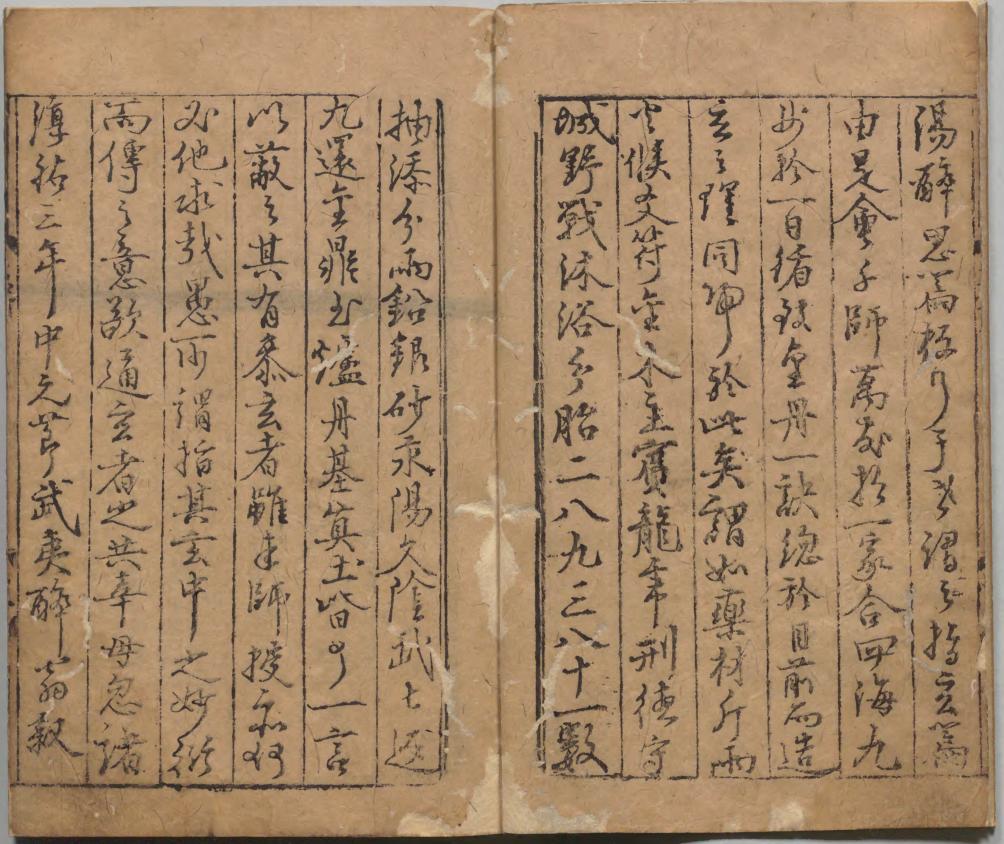 醉思篇標曰予書謂之指玄篇
由是會千師萬友於一家合四海九
州於一日循致金丹一訣總於目前而造
玄之理同歸於此矣謂如藥材斤兩
火候爻符金木主賓龍虎刑德守
城野戰沐浴分胎二八九三八十一數
抽添分兩鉛銀砂汞陽文陰武七返
九還金鼎玉爐丹基真土皆可一言
以蔽之其有參玄者雖未師授亦何
必他求哉愚所謂指其玄中之妙術
而傳之意欲通玄者之共幸毋忽諸
淳祐三年中元節武夷醉翁叙